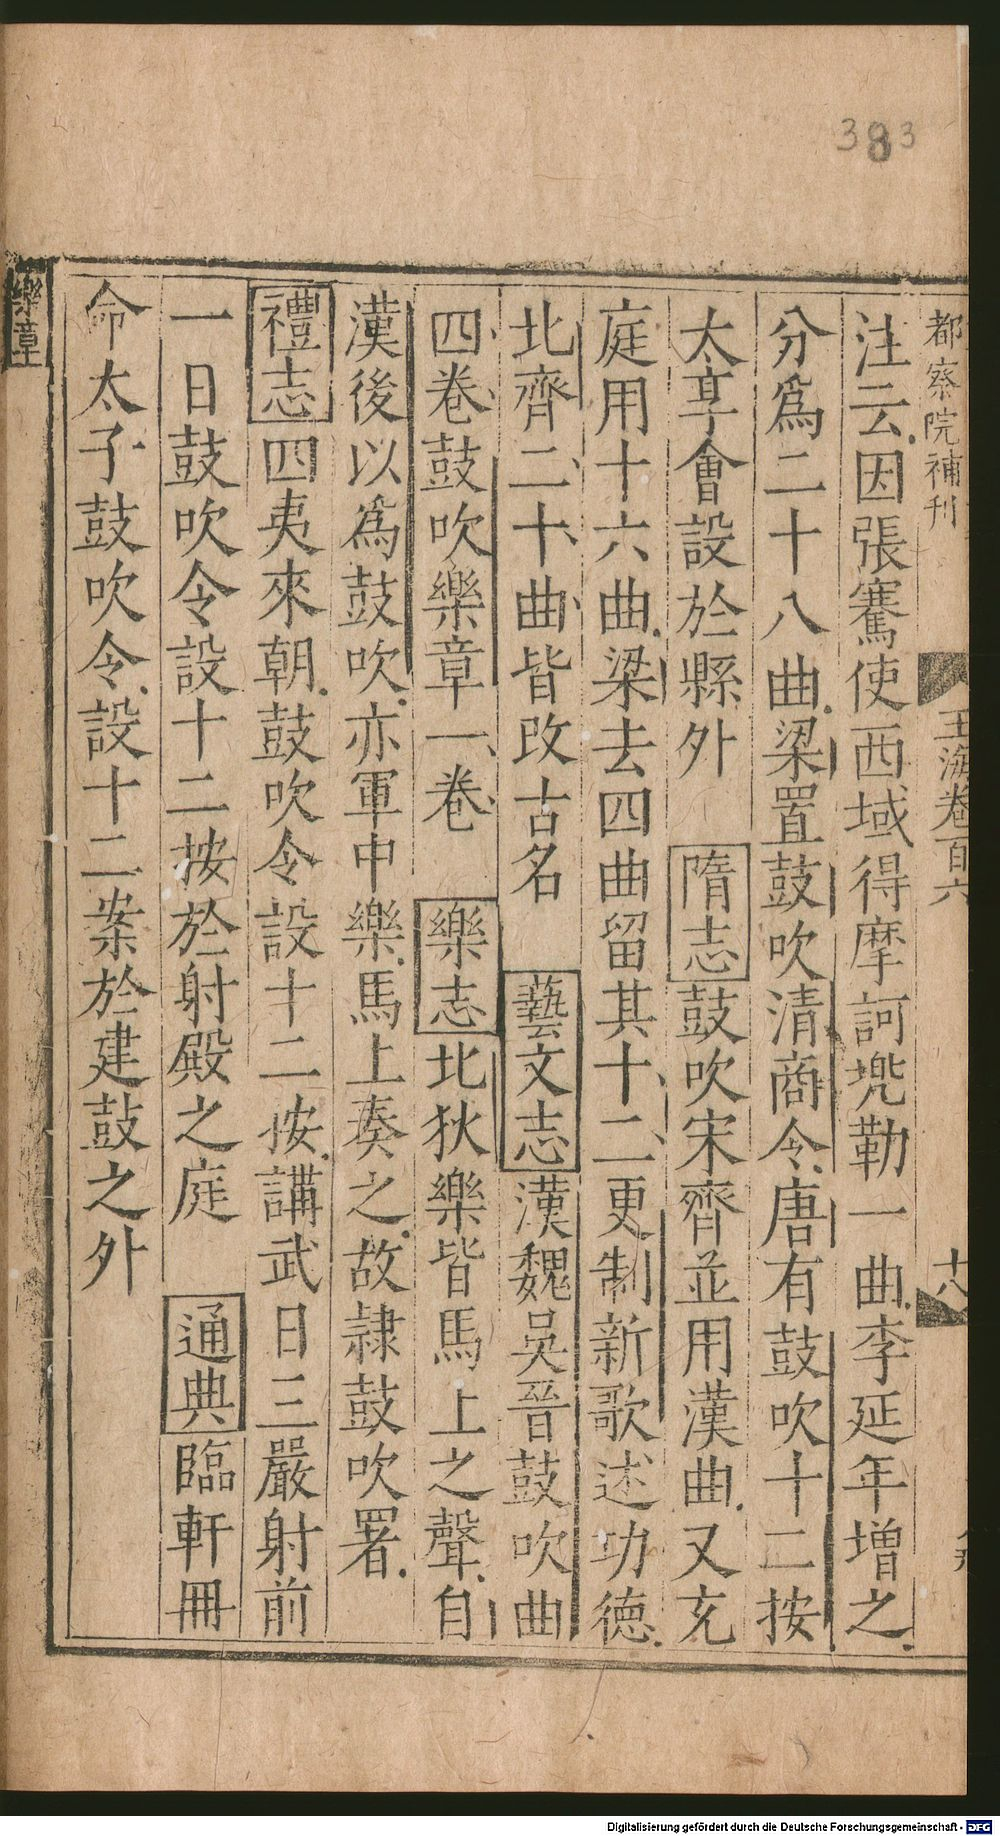 383
都察院補刊
玉海卷百六
十八
注云因張騫使西域得摩訶兠勒一曲李延年增之
分爲二十八曲梁置鼓吹清商令唐有鼓吹十二按
太享會設於縣外 隋志鼓吹宋齊並用漢曲又充
庭用十六曲梁去四曲留其十二更制新歌述功德
北齊二十曲皆改古名 藝文志漢魏吳晉鼓吹曲
四卷鼓吹樂章一卷 樂志北狄樂皆馬上之聲自
漢後以爲鼓吹亦軍中樂馬上奏之故隷鼓吹署
禮志四夷來朝鼓吹令設十二按講武日三嚴射前
一日鼓吹令設十二按於射殿之庭 通典臨軒冊
命太子鼓吹令設十二案於建鼓之外
樂章
Digitalisierung gefördert durch die Deutsche Forschungsgemeinschaft - DFG